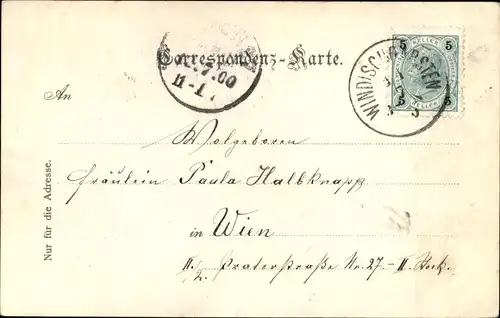 Correspondenz-Karte.
WINDISCHGARSTEN
5 HELLER 5
5 HELLER 5
7.00
11-1
An
Wolgeboren
Fräulein Paula Halbknapp
in Wien
II./2. Praterstraße Nr. 27 – II. Stock.
Nur für die Adresse.